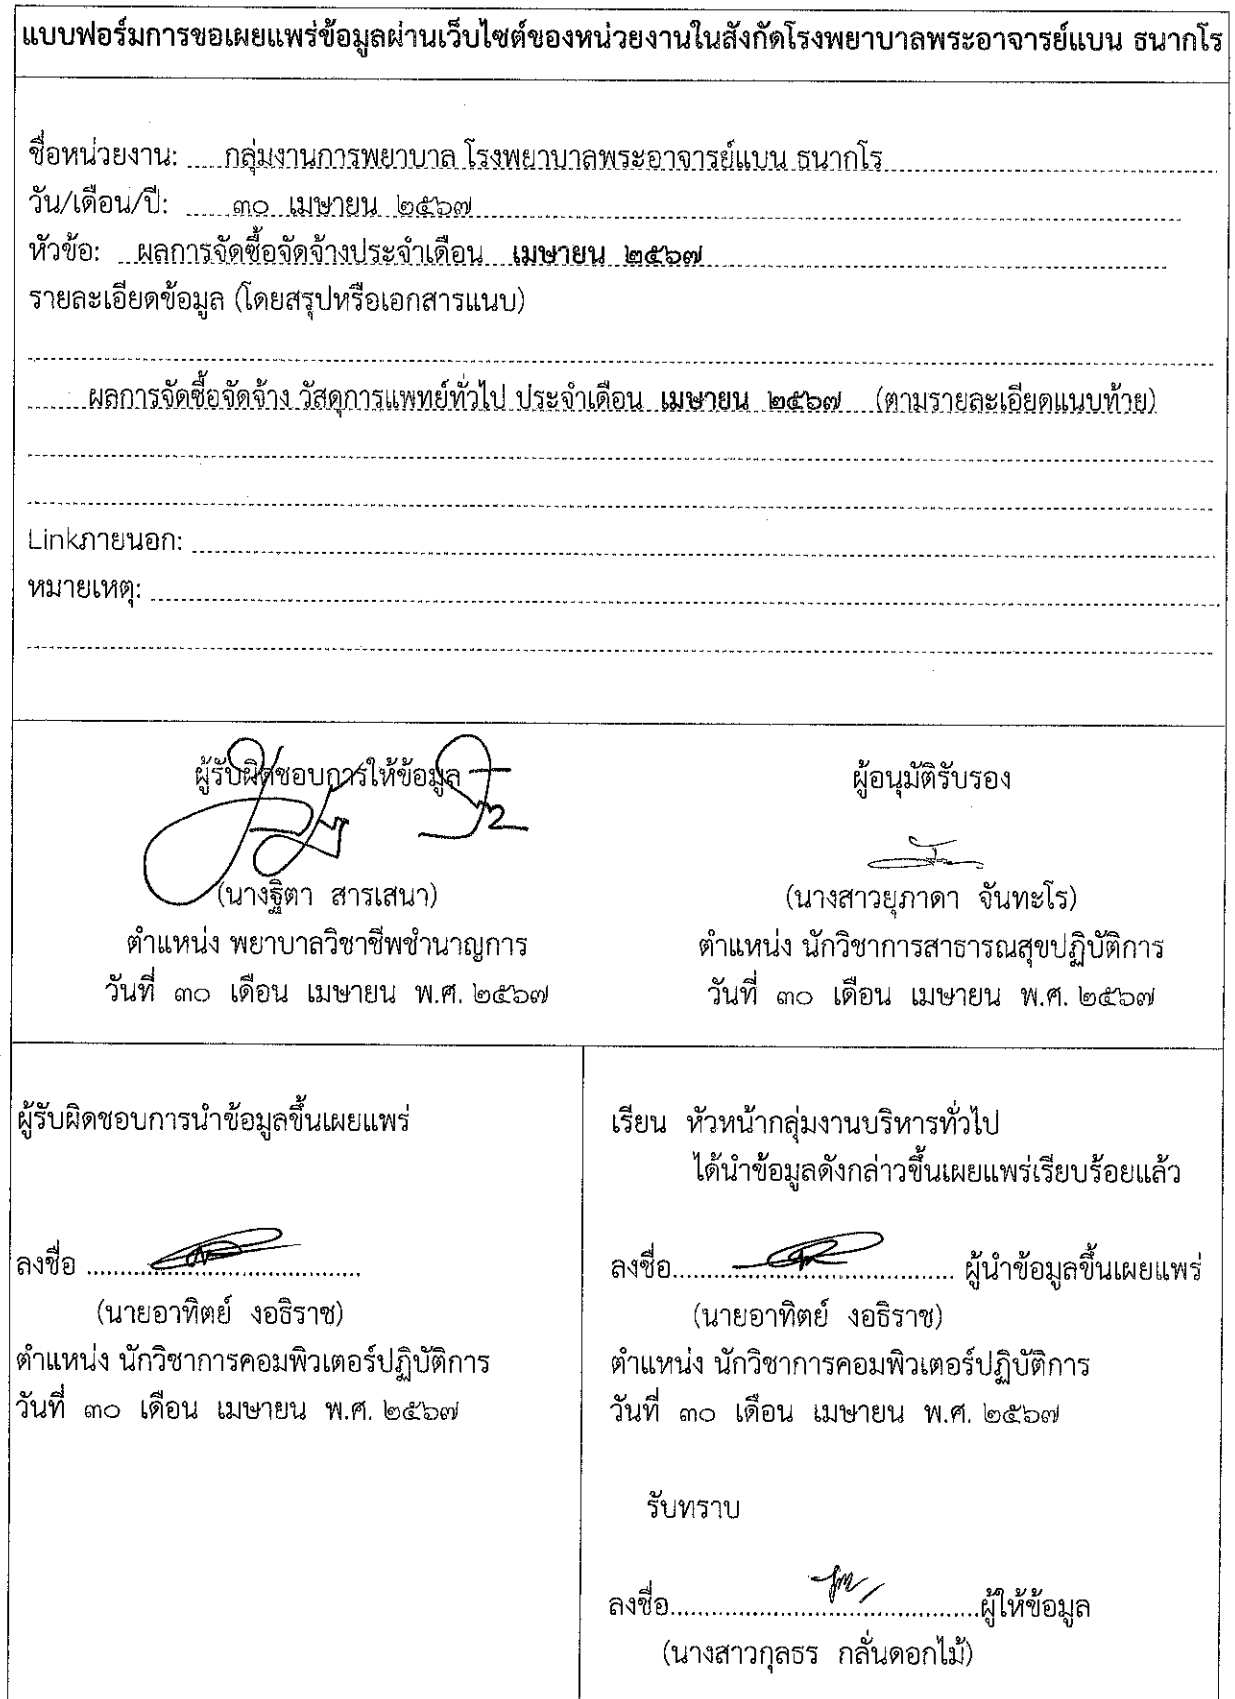 แบบฟอร์มการขอเผยแพร่ข้อมูลผ่านเว็บไซต์ของหน่วยงานในสังกัดโรงพยาบาลพระอาจารย์แบน ธนากโร
ชื่อหน่วยงาน: กลุ่มงานการพยาบาล โรงพยาบาลพระอาจารย์แบน ธนากโร
วัน/เดือน/ปี: ๓๐ เมษายน ๒๕๖๗
หัวข้อ: ผลการจัดซื้อจัดจ้างประจำเดือน เมษายน ๒๕๖๗
รายละเอียดข้อมูล (โดยสรุปหรือเอกสารแนบ)
ผลการจัดซื้อจัดจ้าง วัสดุการแพทย์ทั่วไป ประจำเดือน เมษายน ๒๕๖๗ (ตามรายละเอียดแนบท้าย)
Linkภายนอก:
หมายเหตุ:
ผู้รับผิดชอบการให้ข้อมูล
(นางฐิตา สารเสนา)
ตำแหน่ง พยาบาลวิชาชีพชำนาญการ
วันที่ ๓๐ เดือน เมษายน พ.ศ. ๒๕๖๗
ผู้อนุมัติรับรอง
(นางสาวยุภาดา จันทะโร)
ตำแหน่ง นักวิชาการสาธารณสุขปฏิบัติการ
วันที่ ๓๐ เดือน เมษายน พ.ศ. ๒๕๖๗
ผู้รับผิดชอบการนำข้อมูลขึ้นเผยแพร่
ลงชื่อ ........................................
(นายอาทิตย์ งอธิราช)
ตำแหน่ง นักวิชาการคอมพิวเตอร์ปฏิบัติการ
วันที่ ๓๐ เดือน เมษายน พ.ศ. ๒๕๖๗
เรียน หัวหน้ากลุ่มงานบริหารทั่วไป
ได้นำข้อมูลดังกล่าวขึ้นเผยแพร่เรียบร้อยแล้ว
ลงชื่อ........................................ ผู้นำข้อมูลขึ้นเผยแพร่
(นายอาทิตย์ งอธิราช)
ตำแหน่ง นักวิชาการคอมพิวเตอร์ปฏิบัติการ
วันที่ ๓๐ เดือน เมษายน พ.ศ. ๒๕๖๗
รับทราบ
ลงชื่อ.............................................ผู้ให้ข้อมูล
(นางสาวกุลธร กลั่นดอกไม้)